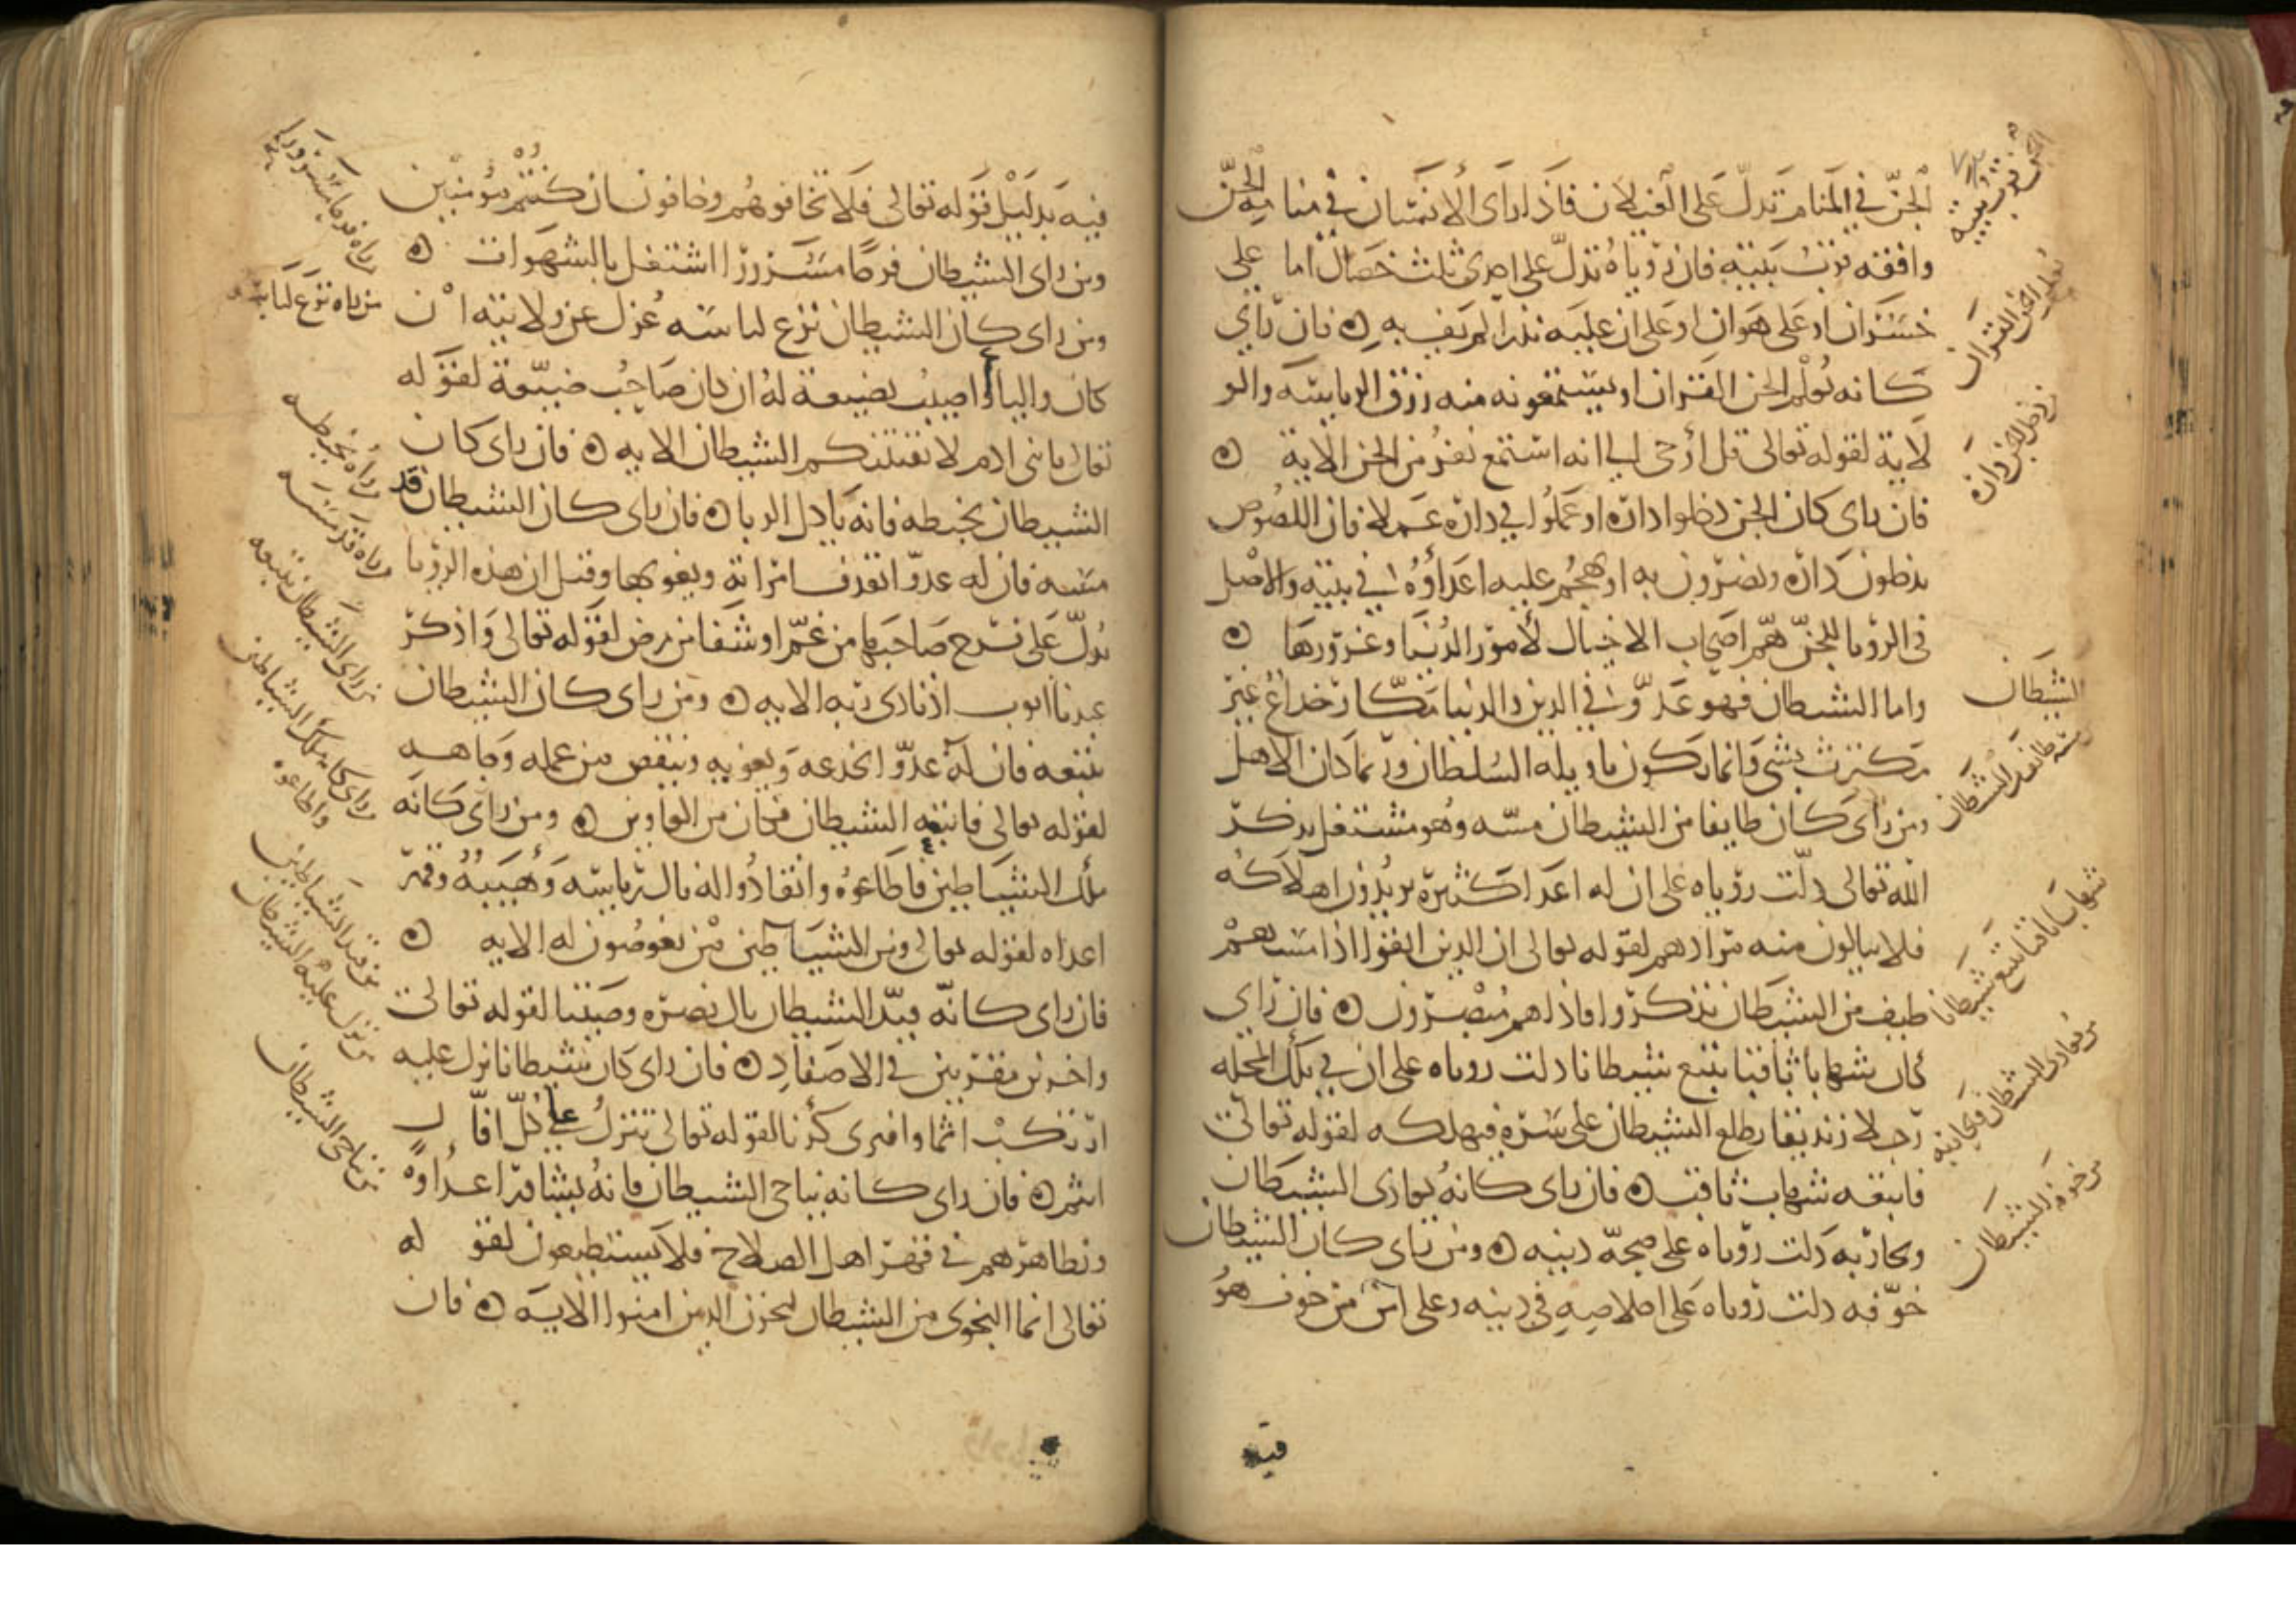 الجن في المنام تدل على الغيلان فاذا راى الانسان في منامه الجن
واقفه قرب بيته فان رؤياه تدل على احدى ثلث خصال اما على
خسران او على هوان او على ان عليه نذرا لم يف به ه فان راي
كانه يعلم الجن القران او يستمعونه منه رزق الرياسه والو
لاية لقوله تعالى قل أوحى الي انه استمع نفر من الجن الاية ه
فان راى كان الجن دخلوا داره او عملوا في داره عملا فان اللصوص
يدخلون داره ويضرون به او يهجم عليه اعداؤه في بيته والاصل
في الرؤيا للجن هم اصحاب الاحتيال لأمور الدنيا وغرورها ه
واما الشيطان فهو عدو في الدين والدنيا مكار خداع غير
مكترث بشي وانما يكون تاويله السلطان وربما كان الاهل
ومن راى كان طايفا من الشيطان مسه وهو مشتغل بذكر
الله تعالى دلت رؤياه على ان له اعدا كثيره يريدون اهلاكه
فلا ينالون منه مرادهم لقوله تعالى ان الذين اتقوا اذا مسهم
طيف من الشيطان تذكروا فاذا هم مبصرون ه فان راي
كان شهابا ثاقبا يتبع شيطانا دلت روياه على ان في تلك المحله
رجلا زنديقا يطلع الشيطان على سره فيهلكه لقوله تعالى
فاتبعه شهاب ثاقب ه فان راى كانه يعادى الشيطان
ويحاربه دلت رؤياه على صحة دينه ه ومن راى كان الشيطان
خوفه دلت رؤياه على اخلاصه في دينه وعلى امن من خوف هو
فيه
الجن قرب بيته
تعلم الجن القران
دخل الجن داره
الشيطان
مسه طايف من الشيطان
شهابا ثاقبا يتبع شيطانا
من يعادى الشيطان ويحاربه
من خوفه الشيطان
فيه بدليل قوله تعالى فلا تخافوهم وخافون ان كنتم مؤمنين
ومن راى الشيطان فرحا مسرورا اشتغل بالشهوات ه
ومن راى كان الشيطان نزع لباسه عزل عن ولايته ان
كان واليا او اصيب بضيعة له ان كان صاحب ضيعة لقوله
تعالى يا بني ادم لا يفتننكم الشيطان الايه ه فان راى كان
الشيطان يخبطه فانه ياكل الربا ه فان راى كان الشيطان قد
مسه فان له عدوا يقذف امراته ويغويها وقيل ان هذه الرؤيا
تدل على فرح صاحبها من غم او شفا من مرض لقوله تعالى واذكر
عبدنا ايوب اذ نادى ربه الايه ه ومن راى كان الشيطان
يتبعه فان له عدوا يخدعه ويغويه وينقص من عمله وجاهه
لقوله تعالى فاتبعه الشيطان فكان من الغاوين ه ومن راى كانه
ملك الشياطين فاطاعوه وانقادوا له نال رياسه وهيبه وقهر
اعداه لقوله تعالى ومن الشياطين من يغوصون له الايه ه
فان راى كانه قيد الشيطان نال نصره وصيتا لقوله تعالى
واخرين مقرنين في الاصفاد ه فان راى كان شيطانا نزل عليه
ارتكب اثما وافترى كذبا لقوله تعالى تنزل على كل افاك
اثيم ه فان راى كانه يناجى الشيطان فانه يشاور اعداوه
ويظاهرهم في قهر اهل الصلاح فلا يستطيعون لقو له
تعالى انما النجوى من الشيطان ليحزن الذين امنوا الايه ه فان
من راه فرحا مسرورا
من راه نزع لباسه
من راه يخبطه
من راه قد مسه
من راى الشيطان يتبعه
من راى كانه ملك الشياطين
واطاعوه
من قيد الشياطين
من نزل عليه الشيطان
من يناجى الشيطان